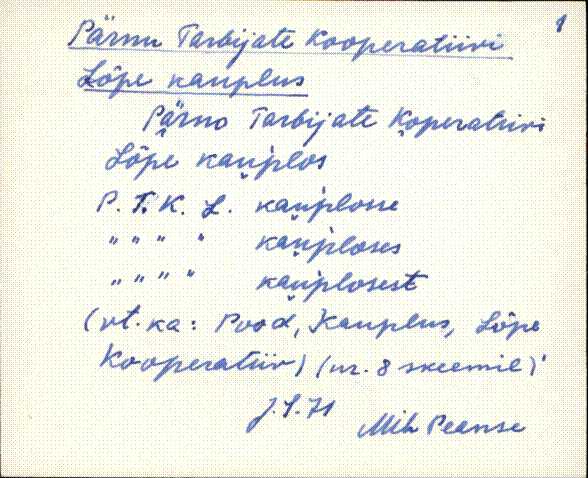 1
Pärnu Tarbijate Kooperatiivi
Lõpe kauplus
Pärno Tarbijate Koperatiivi
Lõpe kauplos
P. T. K. L. kauplosse
" " " " kauploses
" " " " kauplosest
(vt. ka: Pood, Kauplus, Lõpe
Kooperatiiv) (nr. 8 skeemil)
J. S. 71 Mih Peanse